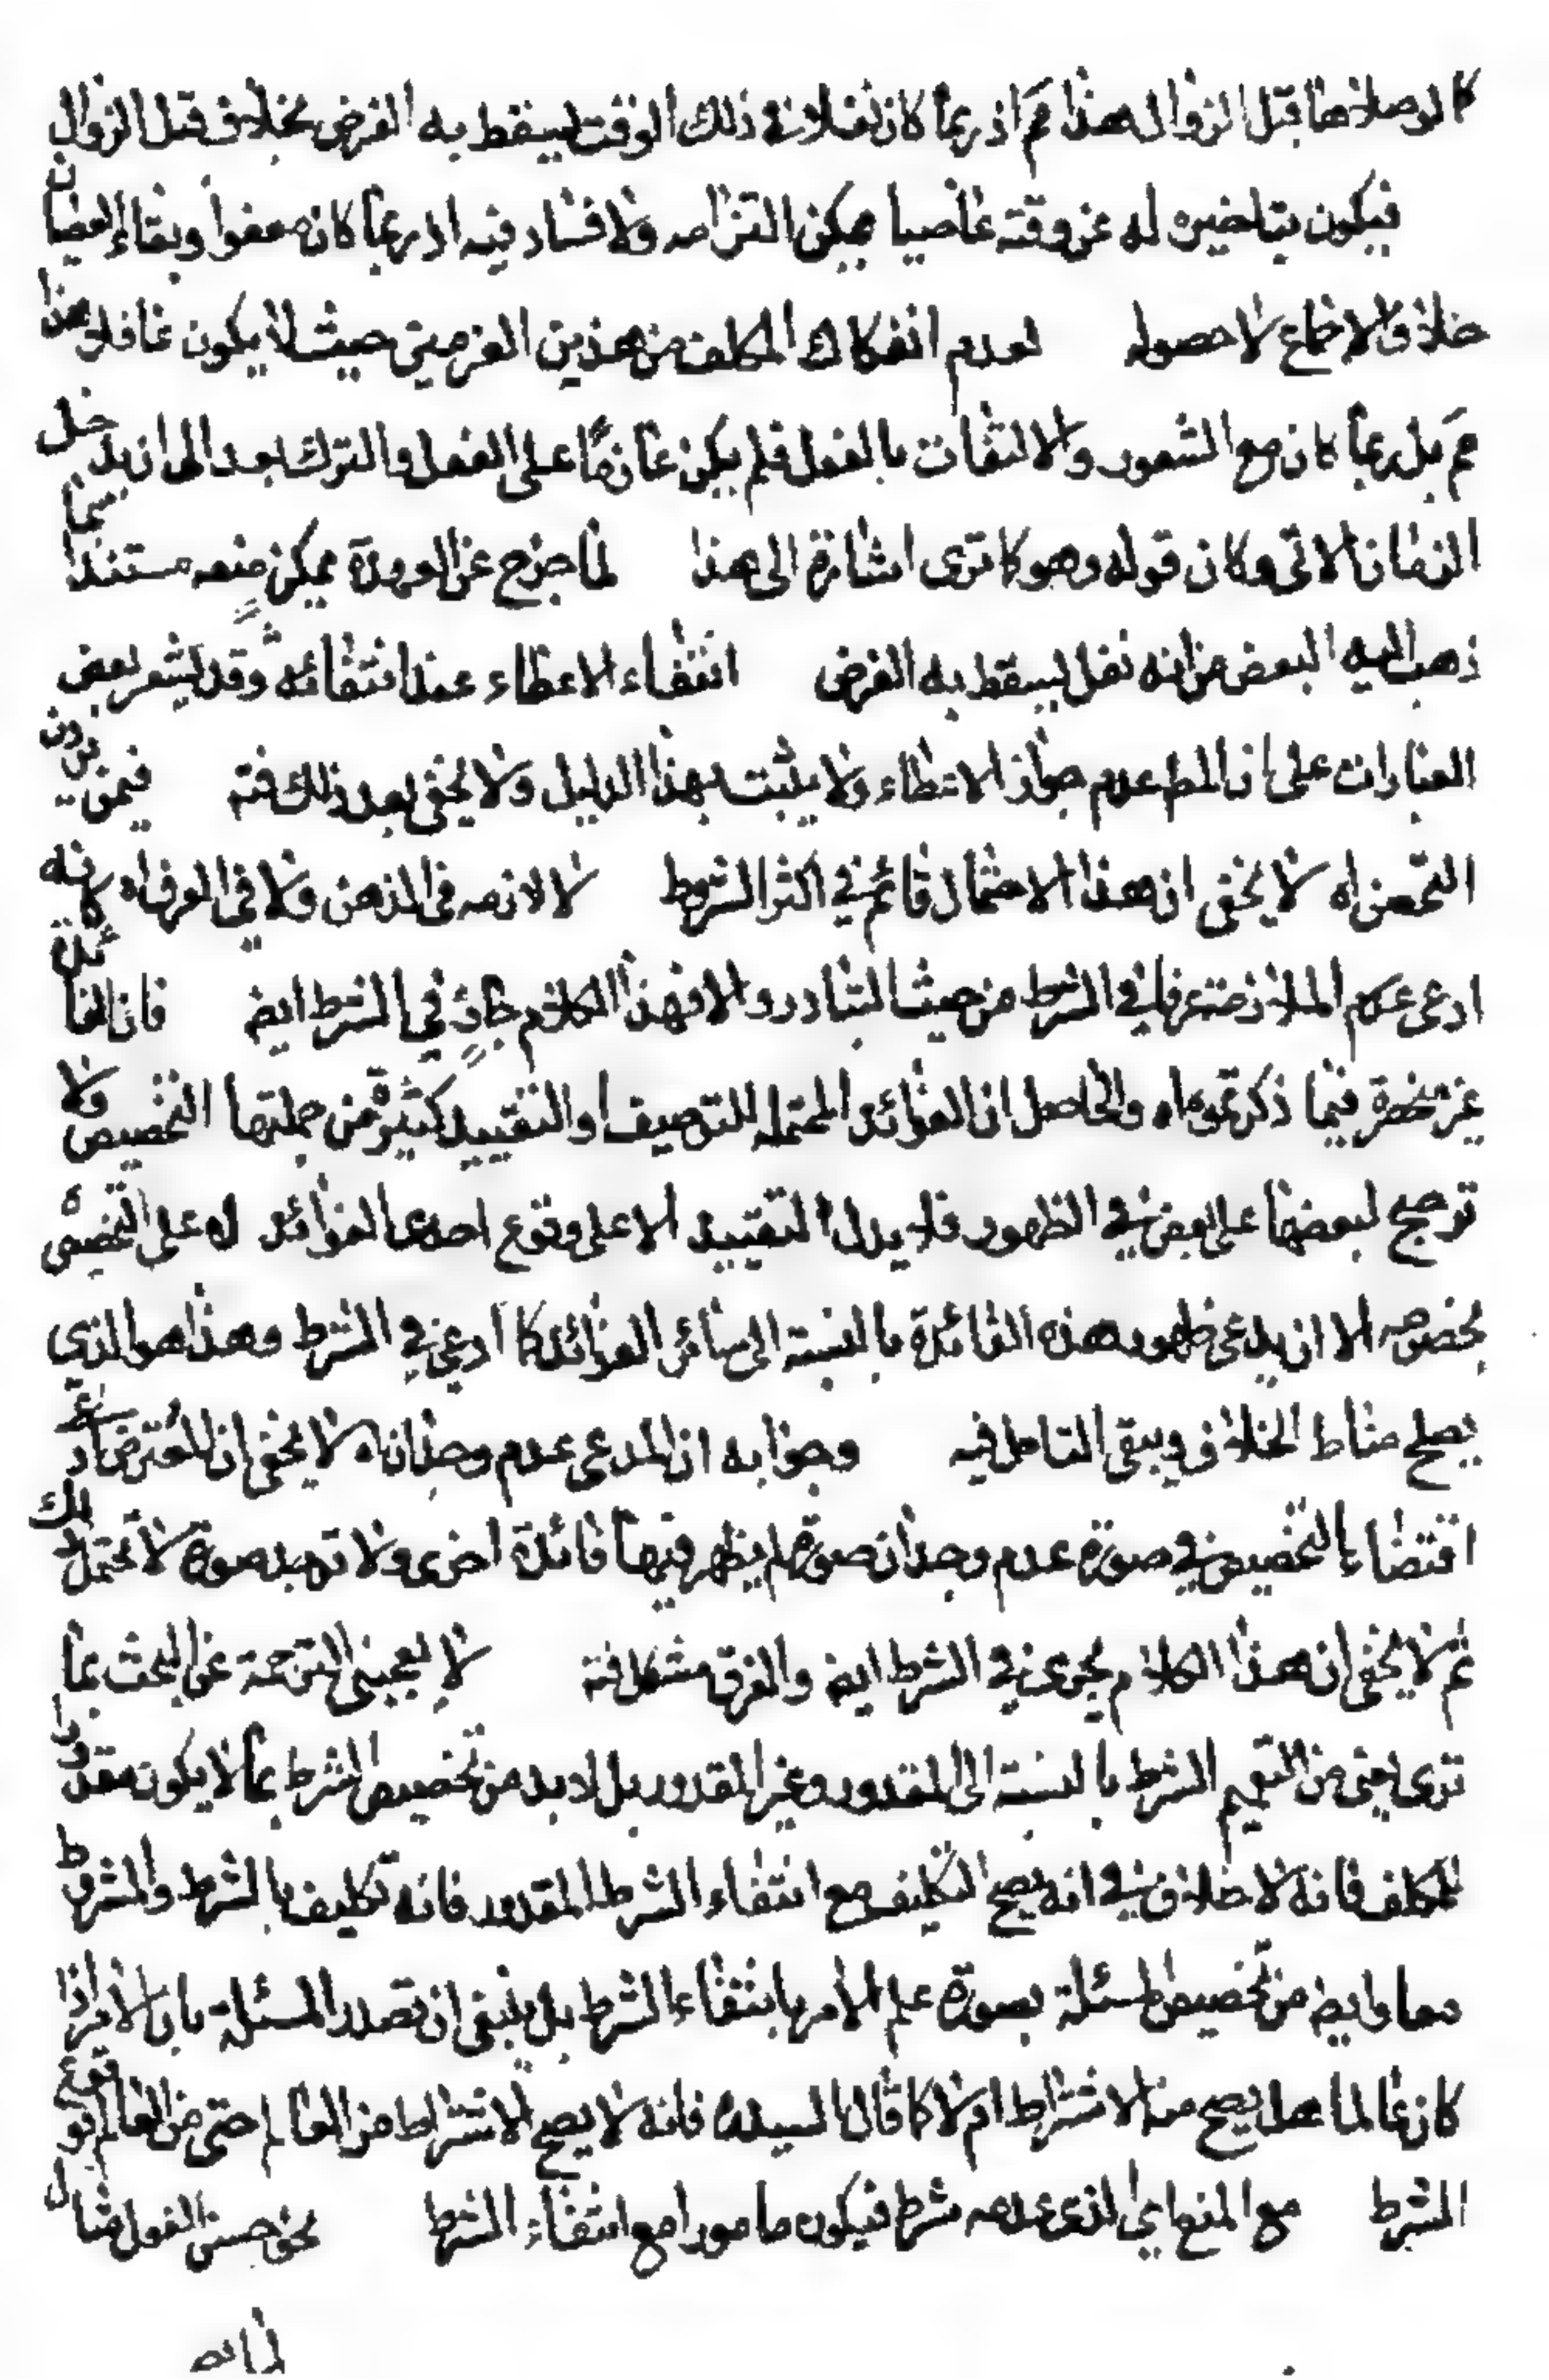 كما لو صلاها قبل الزوال هذا مم اذ ربما كان نفلا في ذلك الوقت يسقط به الفرض بخلاف قبل الزوال
فيكون بتاخيره له عن وقته عاصيا يمكن التزامه ولا فساد فيه اذ ربما كان معفوا وبقاء العصيان
خلاف الاجماع لا حصوله لعدم انفكاك المكلف من هذين العزمين حيث لا يكون غافلا هذا
مم بل ربما كان مع الشعور والالتفات بالفعل فلم يكن عازما على الفعل والترك بعد الى ان يدخل
الزمان الاتى وكان قوله وهو كما ترى اشارة الى هذا لما خرج عن العهدة يمكن منعه مستندا بما
ذهب اليه البعض من انه نفل يسقط به الفرض انتفاء الاعطاء عند انتفائه وقد يشعر بعض
العبارات على ان المط عدم جواز الاعطاء ولا يثبت بهذا الدليل ولا يخفى بعد ذلك فته فيمن يردن
التحصن اه لا يخفى ان هذا الاحتمال قائم في اكثر الشروط لا لازمه فى الذهن ولا في العرف اه كانه
ادعى عدم الملازمة عرفا في الشرط من حيث التبادر والا فهذا الكلام جار في الشرط ايض فان الفائدة
غير منحصرة فيما ذكرتموه اه والحاصل ان الفوائد المحتمله للتوصيف او التقييد كثيرة من جملتها التخصيص ولا
ترجيح لبعضها على بعض في الظهور فلا يدل التقييد الا على وقوع احدى الفوائد له على التخصيص
بخصوصه الا ان يدعى ظهور هذه الفائدة بالنسبة الى سائر الفوائد كما ادعى في الشرط وهذا هو الذي
يصلح مناط الخلاف ويبقى التامل فيه وجوابه ان المدعى عدم وجدان اه لا يخفى ان المعترض ادعى
اقتضاء التخصيص في صورة عدم وجدان صورة لم يظهر فيها فائدة اخرى ولا توجد صورة لا تحتمل
ثم لا يخفى ان هذا الكلام يجرى في الشرط ايض والفرق مشكل فته لا يعجبنى الترجمة عن البحث بما
ترى يعنى من التعميم الشرط بالنسبة الى المقدور وغير المقدور بل لا بد من تخصيص الشرط بما لا يكون مقدورا
للمكلف فانه لا خلاف في انه يصح التكليف مع انتفاء الشرط المقدور فانه تكليف بالشرط والمشروط
معا وايض من تخصيص المسئلة بصورة علم الامر بانتفاء الشرط بل ينبغى ان تصدر المسئلة بان الامر اذا
كان عالما هل يصح منه الاشتراط ام لا كما قال السيد ره فانه لا يصح الاشتراط من العالم حتى من العالم بوقوع
الشرط مع المنع اي الذى عدمه شرط فيكون مامورا مع انتفاء الشرط نحو حسن الفعل مثال